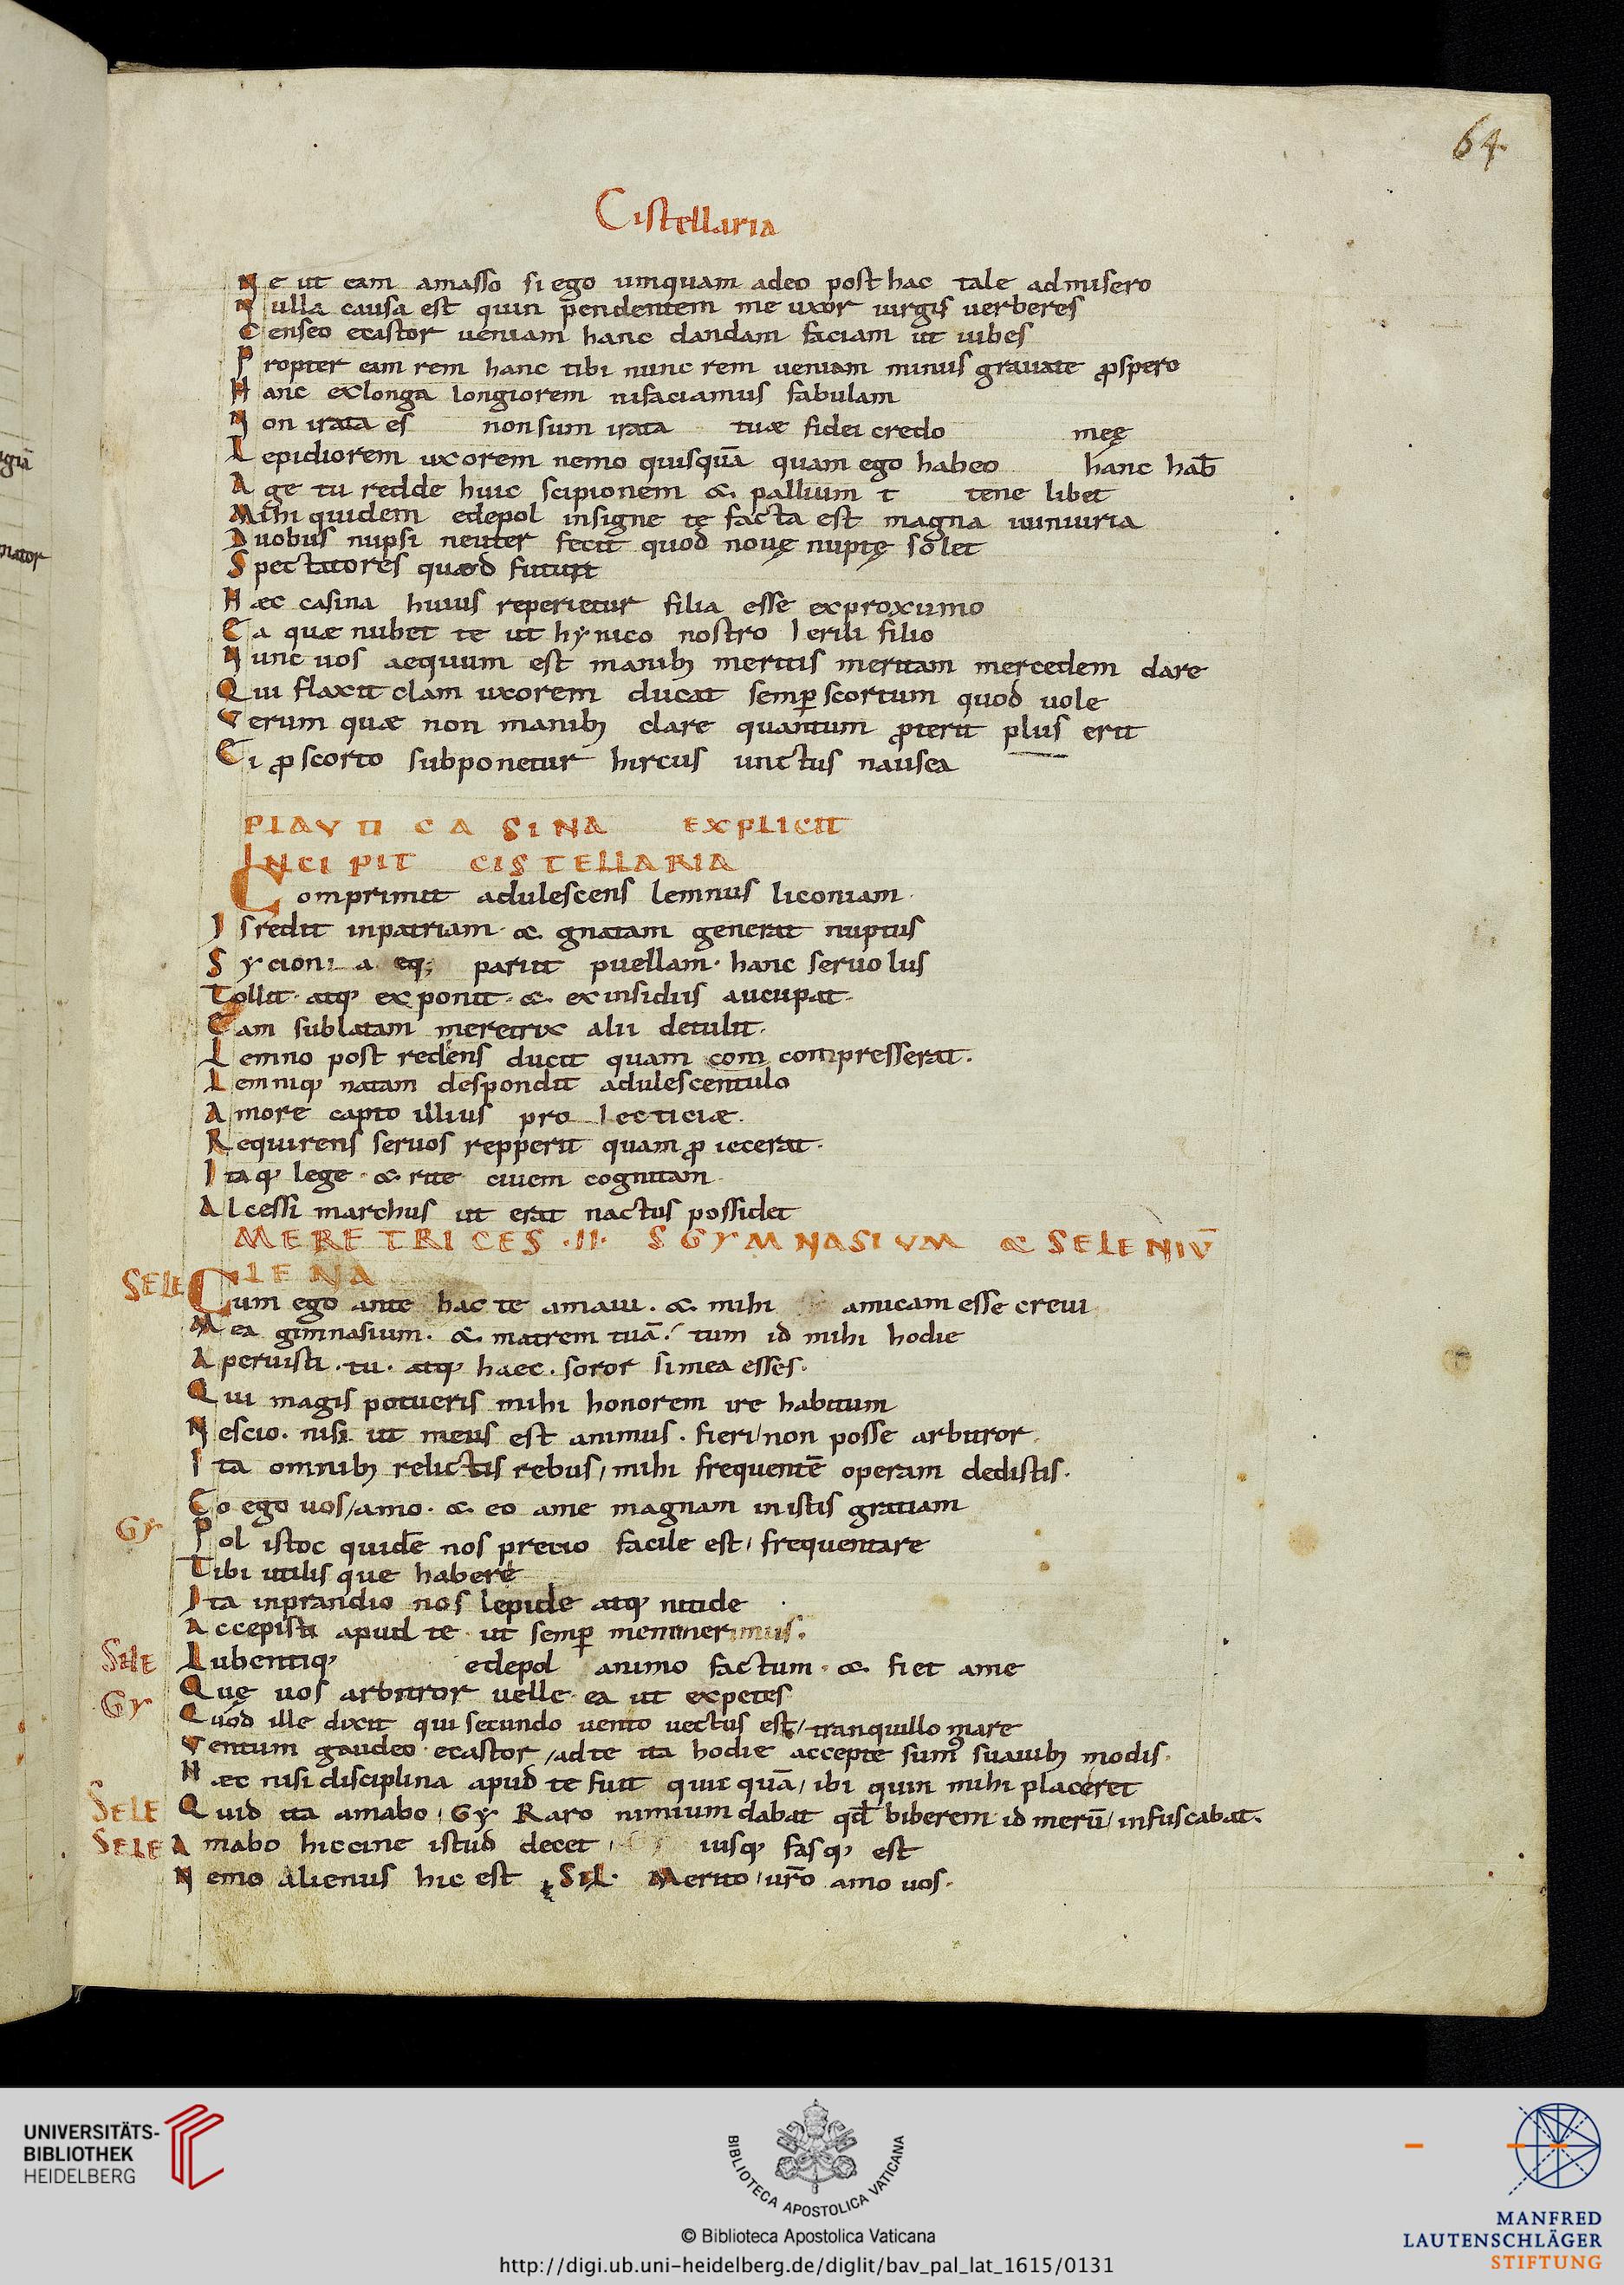 64.
Cistellaria
Ne ut eam amasso si ego umquam adeo post hac tale admisero
Nulla causa est quin pendentem me uxor uirgis uerberes
Censeo ecastor ueniam hanc dandam faciam ut iubes
Propter eam rem hanc tibi nunc rem ueniam minus grauate p̱spero
Hanc exlonga longiorem nifaciamus fabulam
Non irata es nonsum irata tuæ fidei credo meę
Lepidiorem uxorem nemo quisquā quam ego habeo hanc hab̄
Age tu redde huic scipionem & pallium t tene libet
Mihi quidem edepol insigne tę facta est magna iuniuria
Duobus nupsi neuter fecit quod nouę nuptę solet
Spectatores quæd futurt
Hæc casina huius reperietur filia esse exproxumo
Ea quæ nubet te ut hynico nostro l erili filio
Nunc uos aequum est manibꝫ meritis meritam mercedem dare
Qui flaxit clam uxorem ducat semꝑ scortum quod uole
Verum quæ non manibꝫ clare quantum ꝓterit plus erit
Ei ꝓ scorto subponetur hircus unctus nausea
PLAVTI CASINA EXPLICIT
INCIPIT CISTELLARIA
Comprimit adulescens lemnus liconiam.
Is redit inpatriam. & gnatam generat nuptus
Sycioni a eq; parit puellam. hanc seruo lus
Tollit. atqꝫ exponit. & exinsidiis aucupat.
Eam sublatam meretrix alii detulit.
Lemno post rediens ducit quam com compresserat.
Lemniqꝫ natam despondit adulescentulo
Amore capto illius pro lecticiæ.
Requirens seruos repperit quam ꝓ iecerat.
Itaqꝫ lege. & rite ciuem cognitam.
Alcessi marchus ut erat nactus possidet
MERETRICES .II. SGYMNASIVM & SELENIV̄
LENA
SELE Cum ego ante hac te amaui. & mihi amicam esse creui
Mea gimnasium. & matrem tuā. tum id mihi hodie
Aperuisti. tu. atqꝫ haec. soror simea esses.
Qui magis potueris mihi honorem ire habitum
Nescio. nisi ut meus est animus. fieri/non posse arbitror.
Ita omnibꝫ relictis rebus/mihi frequentē operam dedistis.
Eo ego uos/amo. & eo ame magnam inistis gratiam
GY Pol istoc quidē nos pretio facile est/frequentare
Tibi utilis que habere
Ita inprandio nos lepide atqꝫ nitide
Accepisti apud te. ut semꝑ meminerimus.
SILE Lubentiqꝫ edepol animo factum. & fiet ame
Quę uos arbitror uelle. ea ut expetes
GY Quod ille dixit qui secundo uento uectus est/tranquillo mare
Ventum gaudeo ecastor/adte ita hodie accepte sumꝰ suauibꝫ modis.
Hæc nisi disciplina apud te fuit quic quā/ibi quin mihi placeret
SELE Quid ita amabo. GY Raro nimium dabat qd̄ biberem id merū/infuscabat.
SELE Amabo hiccine istud decet iusqꝫ fasqꝫ est
Nemo alienus hic est. SIL. Merito/ur̄o amo uos.
UNIVERSITÄTS-
BIBLIOTHEK
HEIDELBERG
BIBLIOTECA APOSTOLICA VATICANA
© Biblioteca Apostolica Vaticana
http://digi.ub.uni-heidelberg.de/diglit/bav_pal_lat_1615/0131
MANFRED
LAUTENSCHLÄGER
STIFTUNG